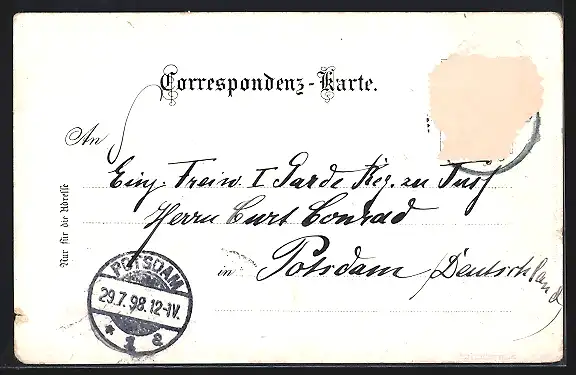 Correspondenz-Karte.
An
Einj. Freiw. I Garde Reg. zu Fuß
Herrn Curt Conrad
in Potsdam (Deutschland)
Nur für die Adresse
POTSDAM
29.7.98.12-1V.
* 1 a